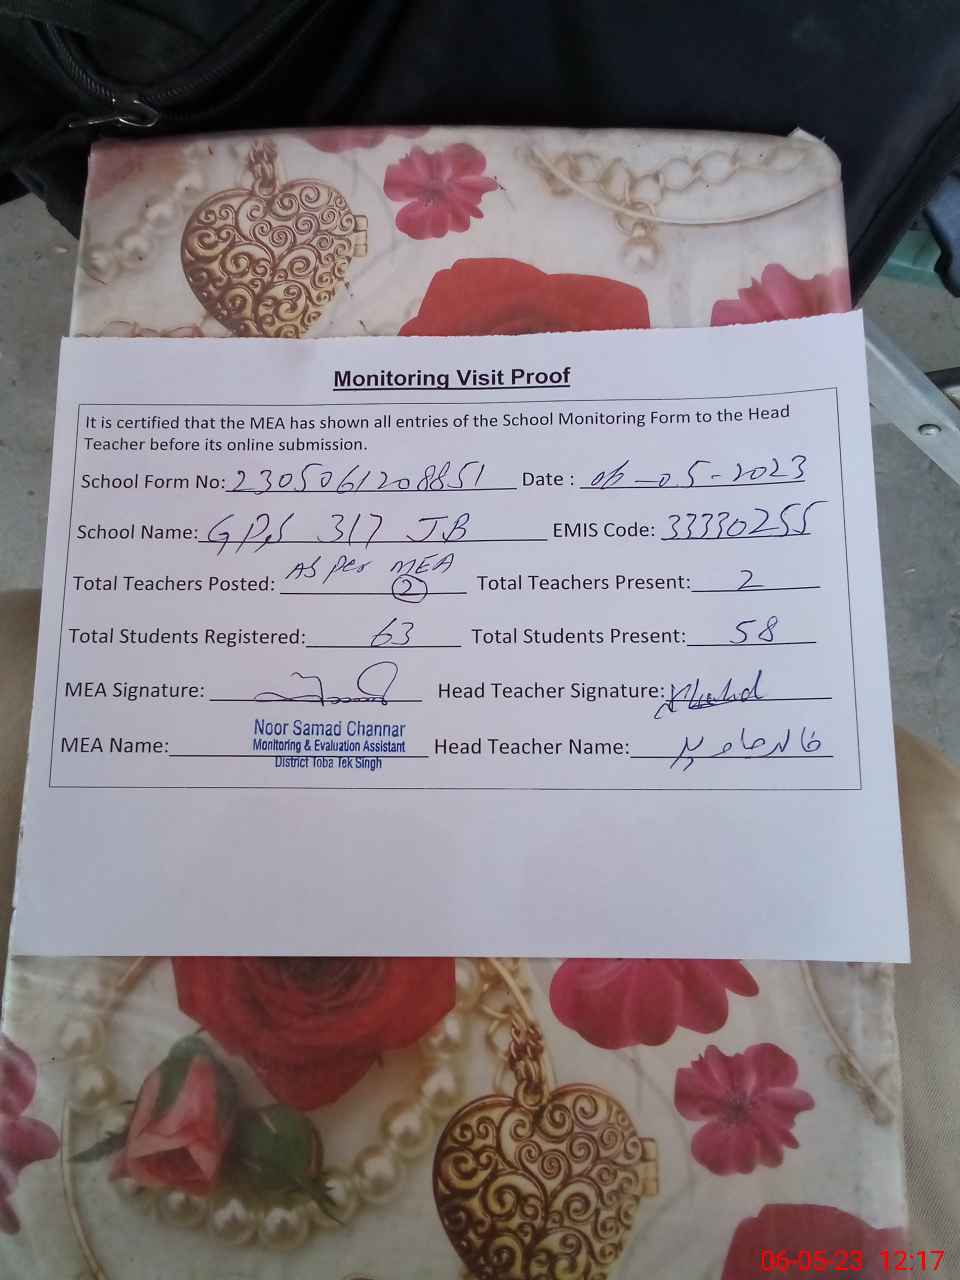 Monitoring Visit Proof
It is certified that the MEA has shown all entries of the School Monitoring Form to the Head
Teacher before its online submission.
School Form No: 2305061208851 Date : 06-05-2023
School Name: GPS 317 JB EMIS Code: 33330255
As per MEA
Total Teachers Posted: 2 Total Teachers Present: 2
Total Students Registered: 63 Total Students Present: 58
MEA Signature: Head Teacher Signature:
Noor Samad Channar
Monitoring & Evaluation Assistant
MEA Name: Head Teacher Name:
District Toba Tek Singh
06-05-23 12:17